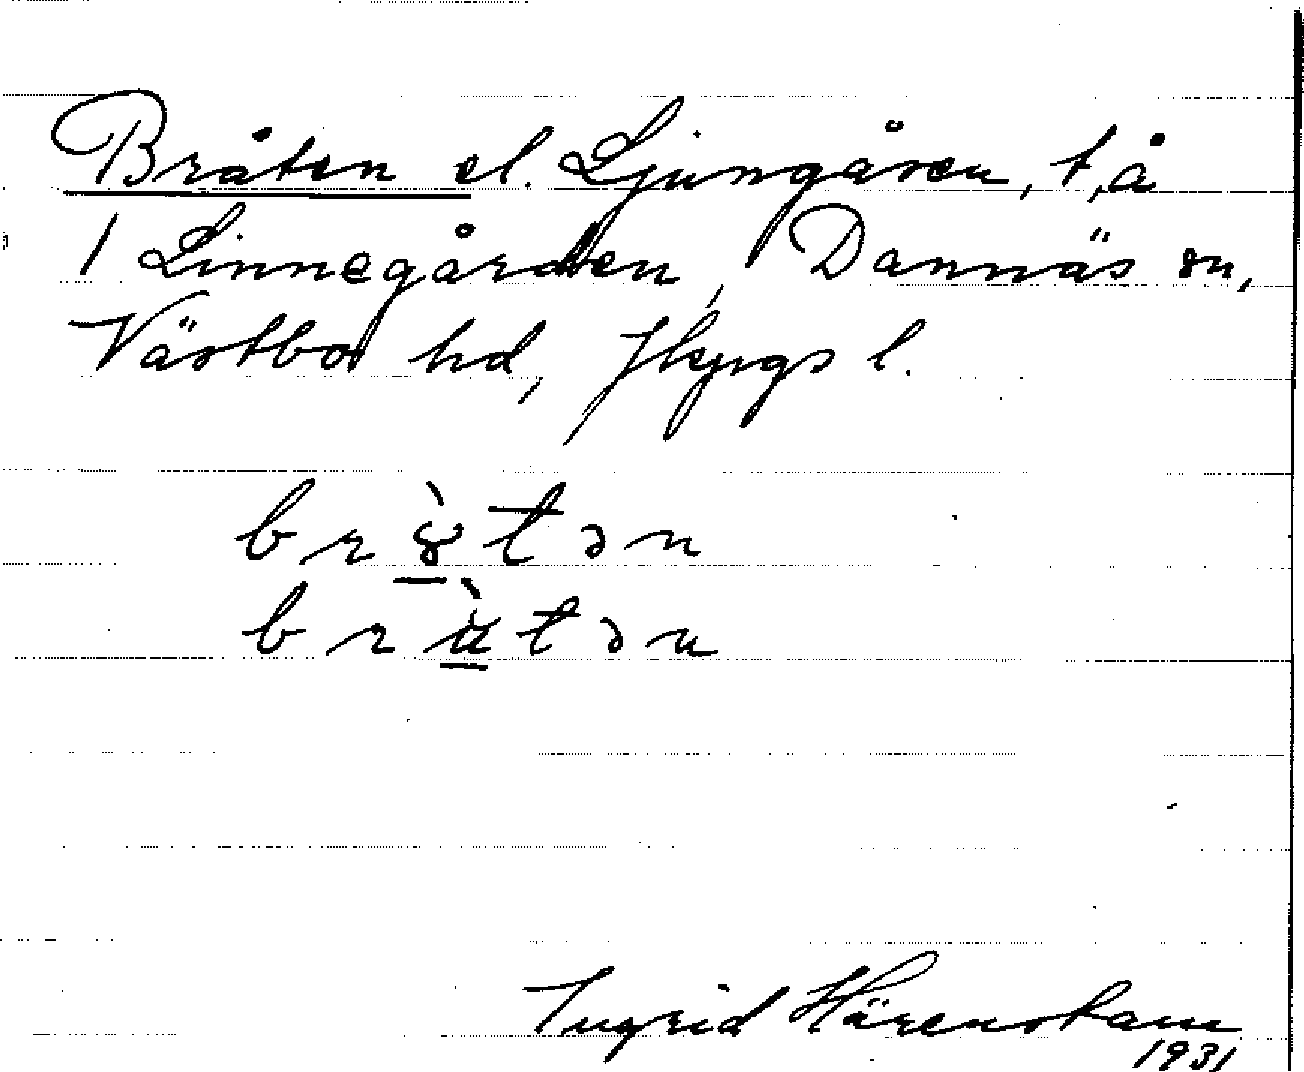 Bråten el. Ljungåsen, t, å
1 Linnegården, Dannäs sn,
Västbo hd, Jkpgs l.
br8̀tən
brùtən
Ingrid Härenstam
1931